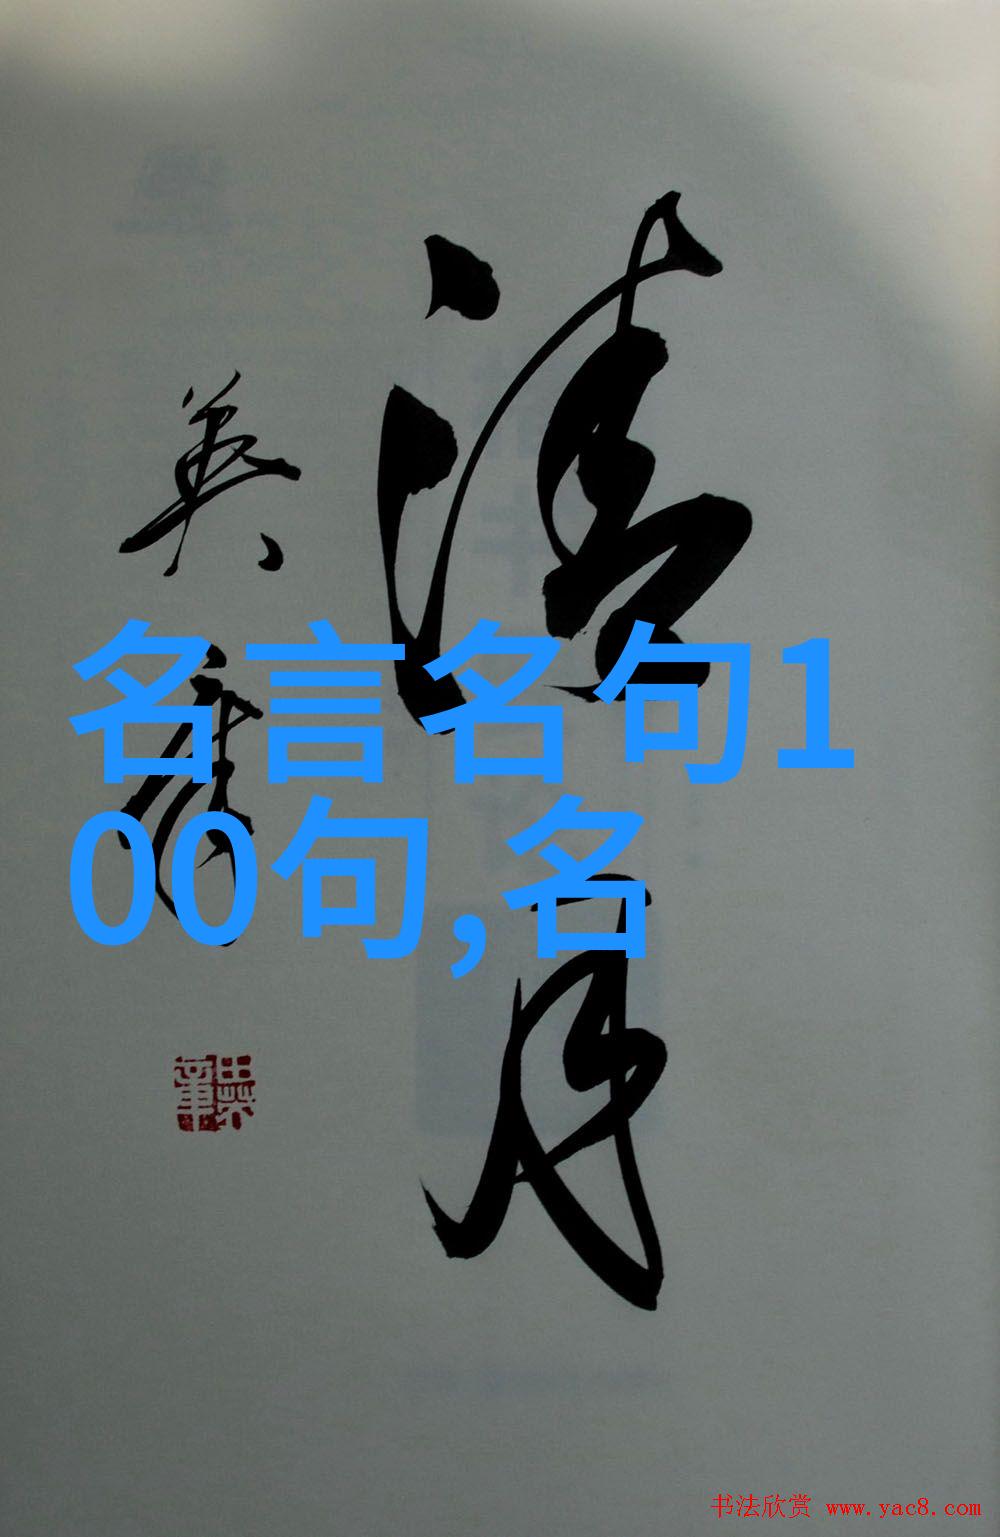 英章
田英章
名言名句1
00句,名
书法欣赏 www.yac8.com